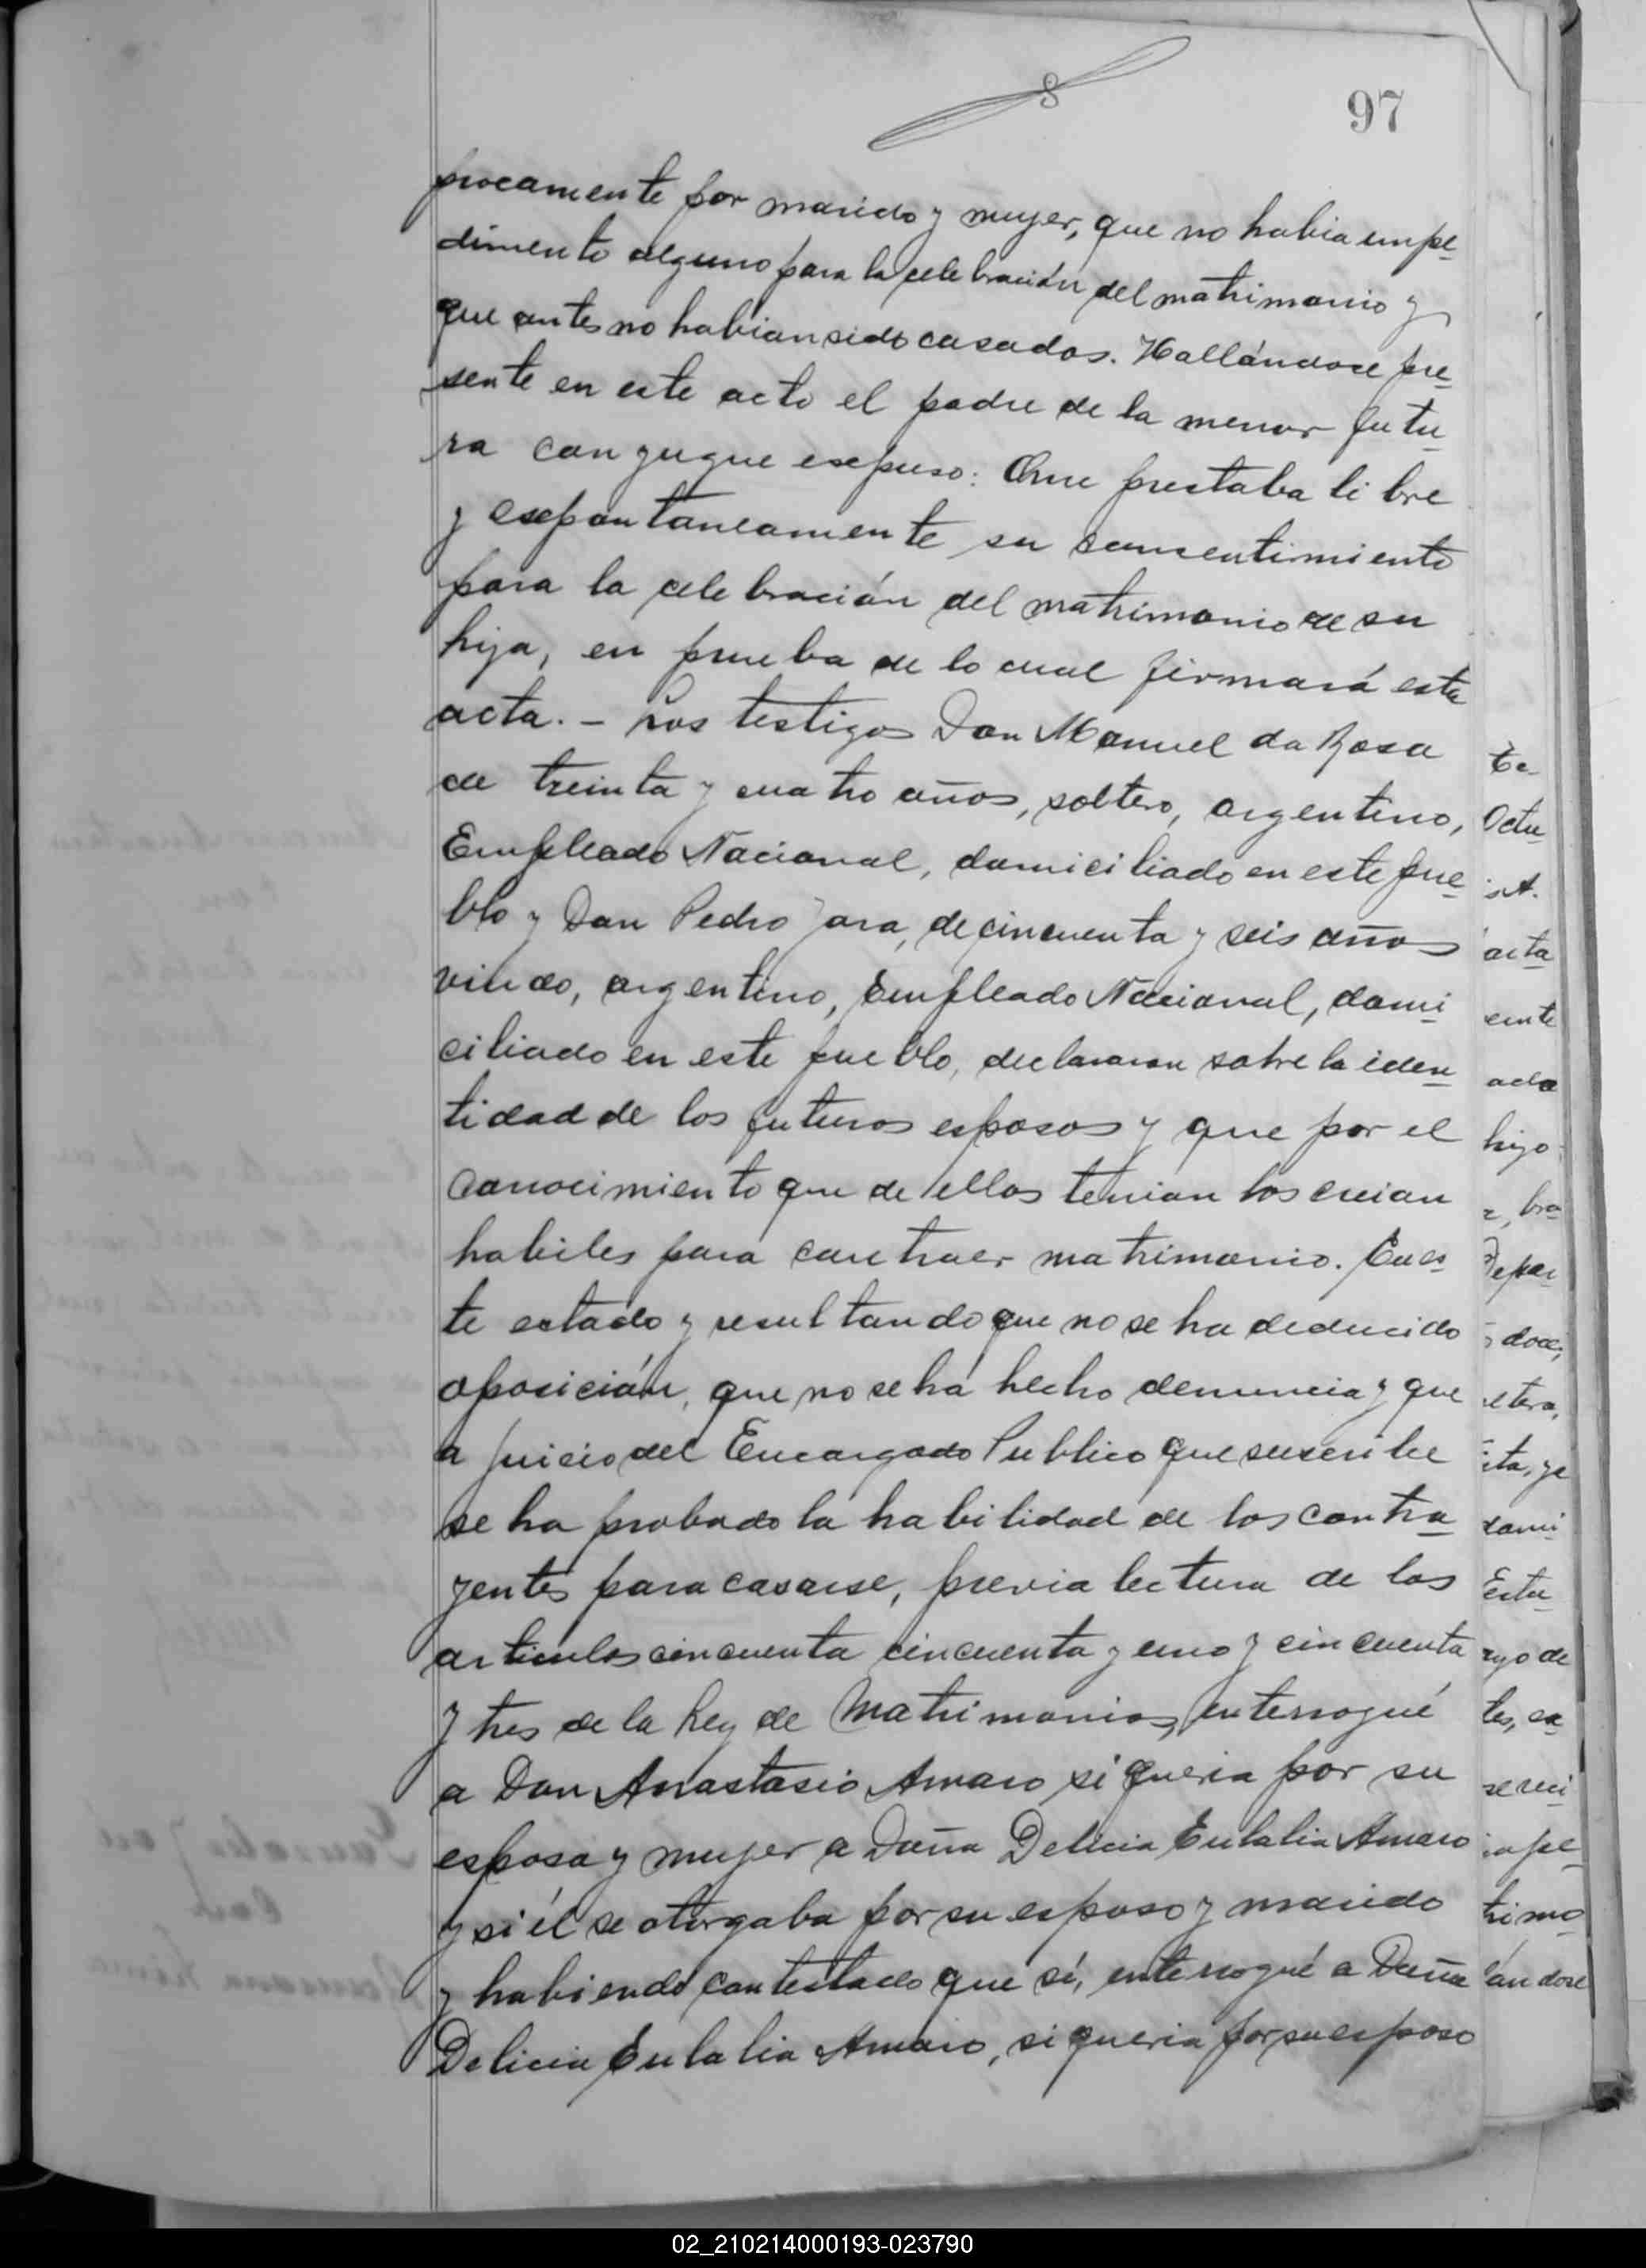 97
procamente por marido y mujer, que no habia empe-
dimento alguno para la celebración del matrimonio y
que antes no habian sido casados. Hallándose pre-
sente en este acto el padre de la menor futu-
ra conyugue esepuso: Que prestaba libre
y esepontaneamente su consentimiento
para la celebración del matrimonio de su
hija, en prueba de lo cual firmará esta
acta. - Los testigos Don Manuel da Rosa
de treinta y cuatro años, soltero, argentino,
Empleado Nacional, domiciliado en este pue-
blo y Don Pedro Jara, de cincuenta y seis años
viudo, argentino, Empleado Nacional, domi-
ciliado en este pueblo, declararon sobre la iden-
tidad de los futuros esposos y que por el
conocimiento que de ellos tenian los creian
habiles para contraer matrimonio. En es-
te estado y resultando que no se ha deducido
oposición, que no se há hecho denuncia y que
a juicio del Encargado Publico que suscribe
se ha probado la habilidad de los contra-
yentes para casarse, previa lectura de los
articulos cincuenta cincuenta y uno y cincuenta
y tres de la Ley de Matrimonios, enterrogué
a Don Anastasio Amaro si queria por su
esposa y mujer a Doña Delicia Eulalia Amaro
y si él se otorgaba por su esposo y marido
y habiendo contestado que sí, enterrogué a Doña
Delicia Eulalia Amaro, si queria por su esposo
Octu-
acta
ente
hijo
Depar-
doce,
domi-
Estu-
trimo-
lándose
02_210214000193-023790